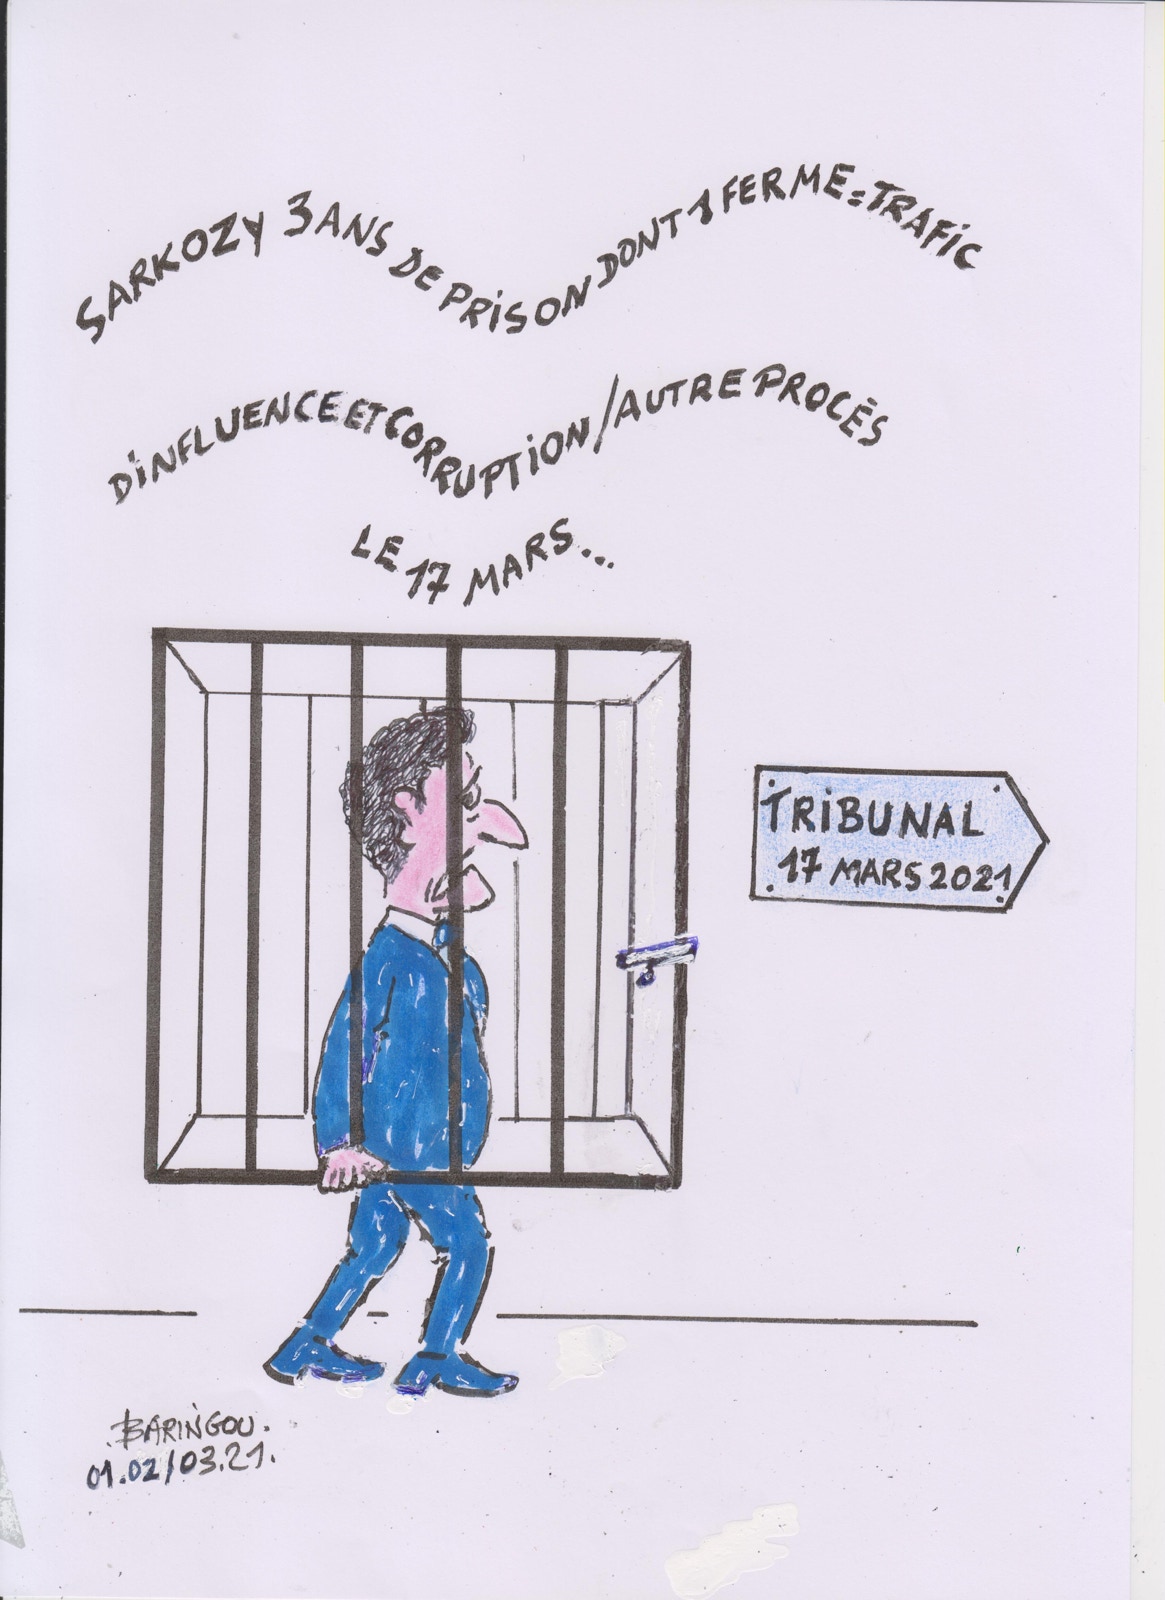 SARKOZY 3 ANS DE PRISON DONT 1 FERME = TRAFIC
D'INFLUENCE ET CORRUPTION / AUTRE PROCÈS
LE 17 MARS...
TRIBUNAL
17 MARS 2021
BARINGOU.
01.02/03.21.